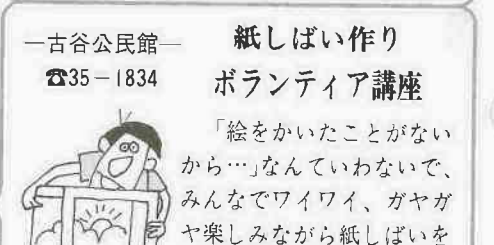 ―古谷公民館―
☎35－1834
紙しばい作り
ボランティア講座
「絵をかいたことがない
から…」なんていわないで、
みんなでワイワイ、ガヤガ
ヤ楽しみながら紙しばいを